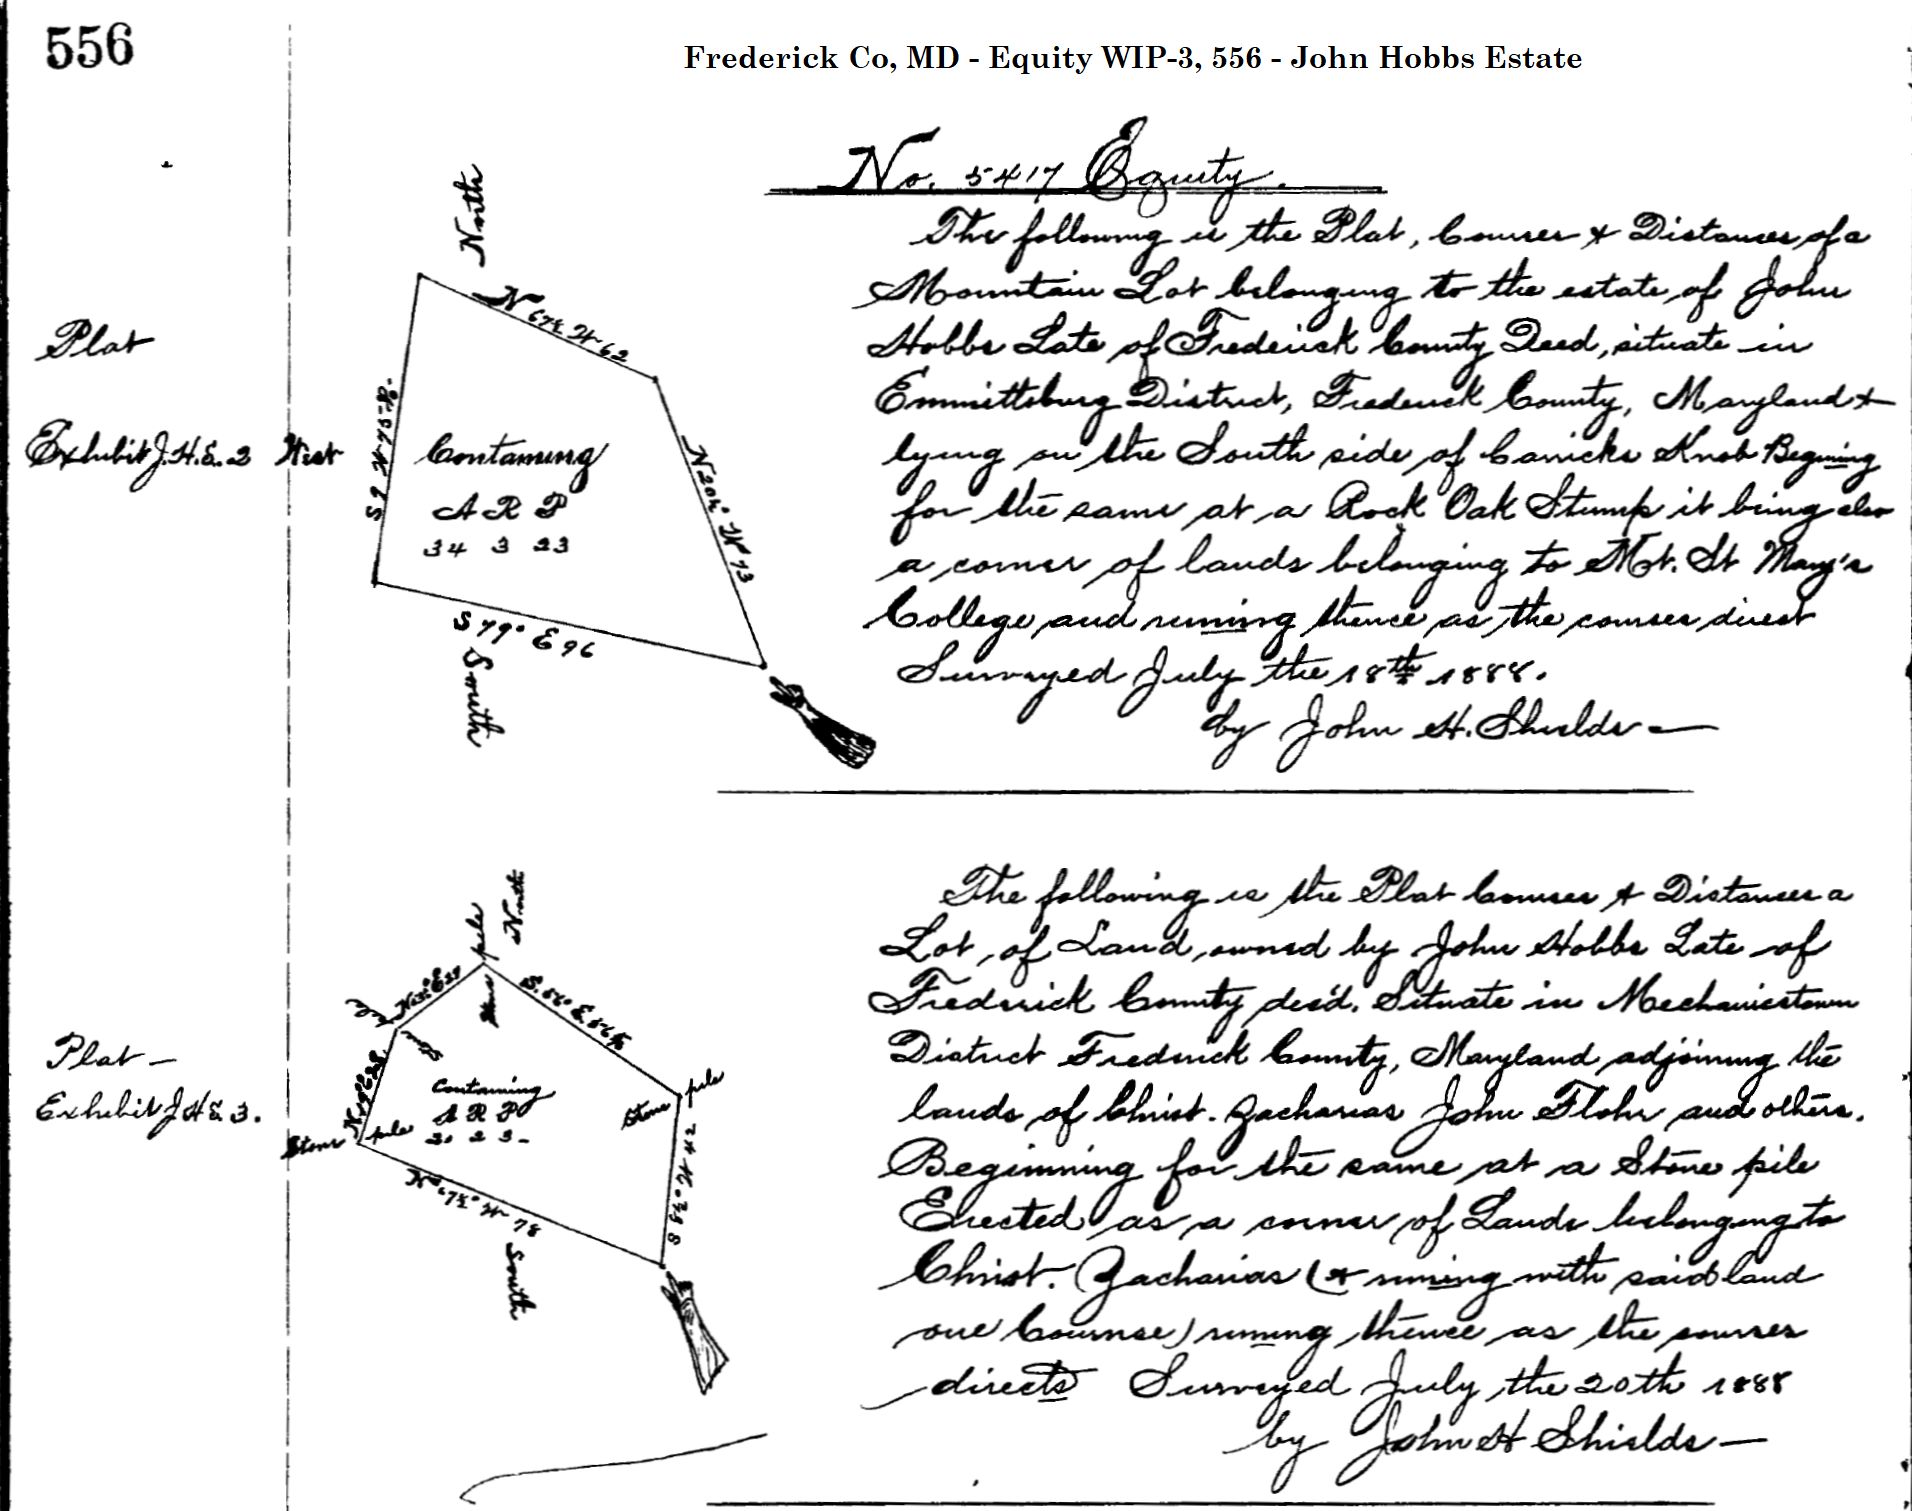 556
Frederick Co, MD - Equity WIP-3, 556 - John Hobbs Estate
No. 5417 Equity.
Plat
Exhibit J.H.E. 2
North
West
South
N 67½ W 62
N 20½° W 73
S 9 W 75-8-
S 79° E 96
Containing
A R P
34 3 23
The following is the Plat, Courses & Distances of a
Mountain Lot belonging to the estate of John
Hobbs Late of Frederick County Decd, situate in
Emmittsburg District, Frederick County, Maryland &
lying on the South side of Carricks Knob Begining
for the same at a Rock Oak Stump it being also
a corner of lands belonging to Mt. St Mary's
College and runing thence as the courses direct
Surveyed July the 18th 1888.
by John H. Shields
Plat
Exhibit J H E 3.
North
pile
Stone
S. 56° E. 56
Stone pile
Stone pile
N 67½° W 78
S 8½° W 42
South
Containing
A R P
The following is the Plat Courses & Distances a
Lot of Land owned by John Hobbs Late of
Frederick County dec'd. Situate in Mechanicstown
District Frederick County, Maryland adjoining the
lands of Christ. Zacharias John Flohr and others.
Beginning for the same at a Stone pile
Erected as a corner of Lands belonging to
Christ. Zacharias (& runing with said land
one Course) runing thence as the courses
directs Surveyed July the 20th 1888
by John H Shields